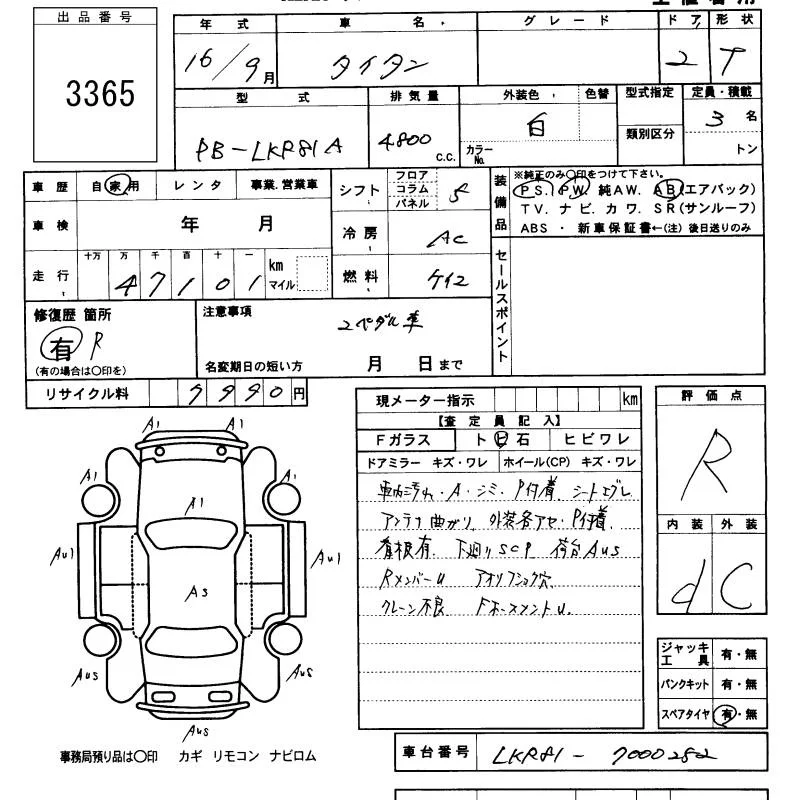 出品番号
3365
年式 車名 グレード ドア 形状
16/9月 タイタン 2 T
型式 排気量 外装色 色替 型式指定 定員・積載
PB-LKR81A 4,800 C.C. 白 カラーNo. 類別区分 3名 トン
車歴 自家用 レンタ 事業.営業車
車検 年 月
走行 十万 万 千 百 十 一 km マイル
47101
シフト フロア コラム パネル 5
冷房 AC
燃料 ケイ2
装備品
※純正のみ〇印をつけて下さい。
PS. PW. 純AW. AB(エアバック)
TV. ナビ. カワ. SR(サンルーフ)
ABS ・ 新車保証書←(注) 後日送りのみ
セールスポイント
修復歴 箇所
有 R
(有の場合は〇印を)
注意事項
2ペダル車
名変期日の短い方 月 日まで
リサイクル料 9990円
現メーター指示 km
【査定員記入】
Fガラス トビ石 ヒビワレ
ドアミラー キズ・ワレ ホイール(CP) キズ・ワレ
車内汚れ・A・シミ・P付着 シートエグレ
アンテナ曲がり、外装各アセ、P付着
看板有、下廻りSCP 荷台AUS
RメンバーU アオリフック穴
クレーン不良 FホースメントU.
評価点
R
内装 外装
d C
ジャッキ工具 有・無
パンクキット 有・無
スペアタイヤ 有・無
A1 A1
A1 A1
A1
AU1 AU1
AS
AUS AUS
AUS
事務局預り品は〇印 カギ リモコン ナビロム
車台番号 LKR81-7000252